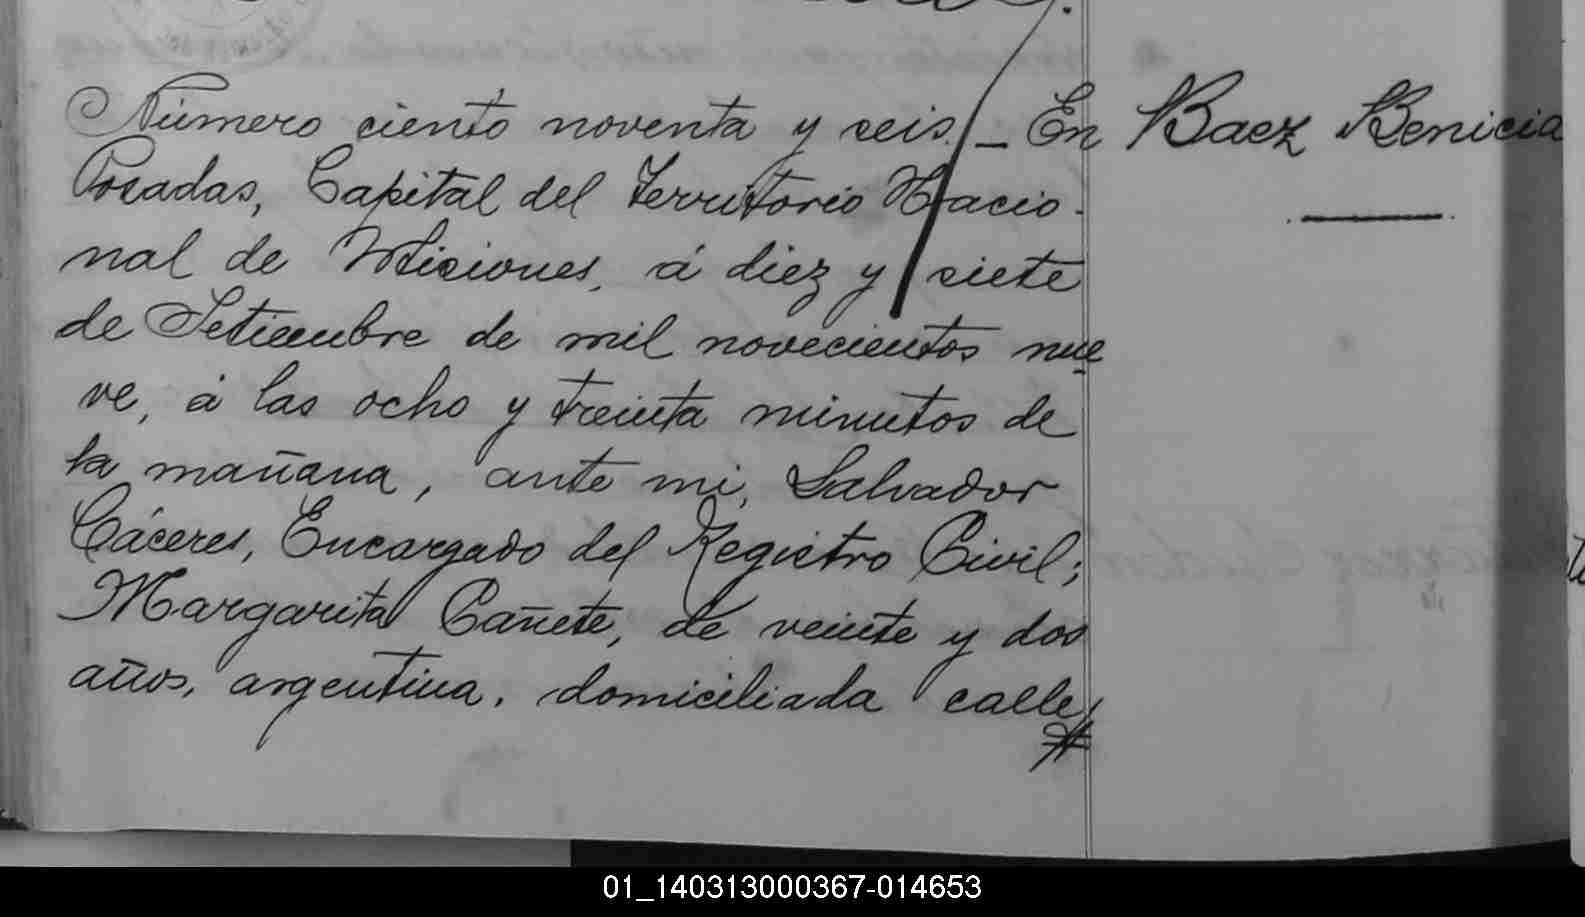 Número ciento noventa y seis. — En
Posadas, Capital del Territorio Nacio-
nal de Misiones, á diez y siete
de Setiembre de mil novecientos nue
ve, á las ocho y treinta minutos de
la mañana, ante mi, Salvador
Cáceres, Encargado del Registro Civil;
Margarita Cañete, de veinte y dos
años, argentina, domiciliada calle
Baez Benicia
01_140313000367-014653